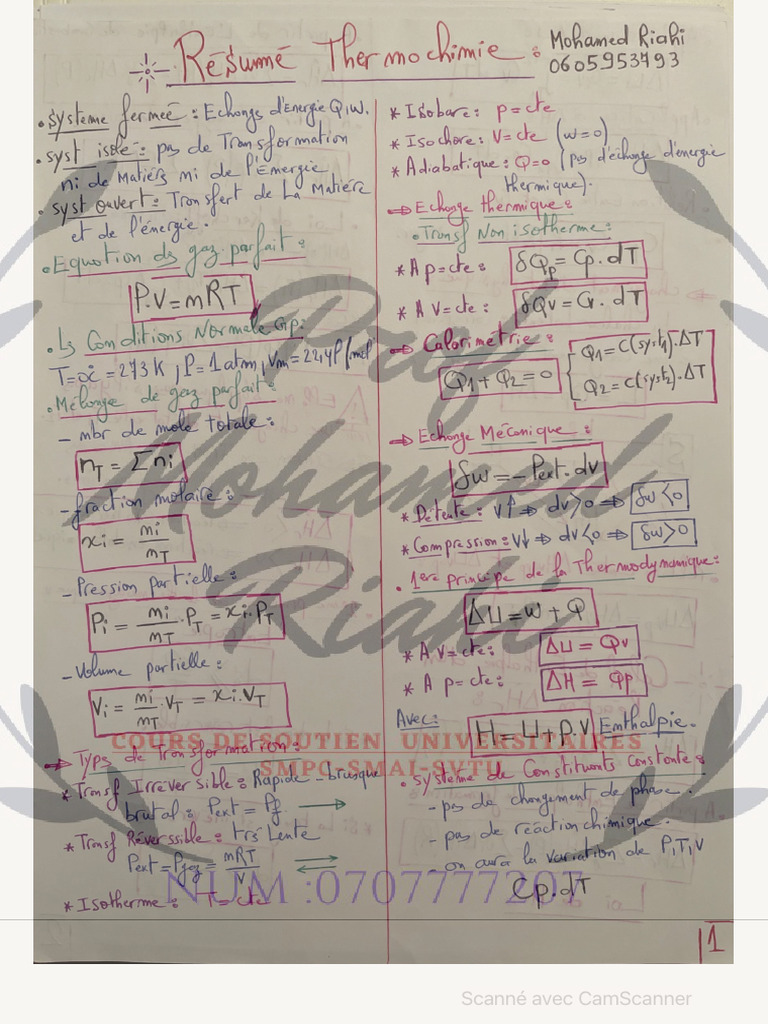 Résumé Thermochimie :
Mohamed Riahi
0605953793
• système fermeé : Echange d'Energie Q,W.
• syst isolé : pas de Transformation
ni de Matière ni de l'Énergie
• syst ouvert : Transfert de La Matière
et de l'énergie.
• Equation de gaz parfait :
P.V = nRT
• Ls Conditions Normale G.p:
T=0c = 273K, P=1atm, Vm=22,4l/mol
• Mélange de gaz parfait :
– nbr de mole totale :
nT = Σni
– fraction molaire :
xi = ni/nT
– Pression partielle :
Pi = ni/nT . PT = xi.PT
– Volume partielle :
Vi = ni/nT . VT = xi.VT
⇒ Typs de Transformation :
* Transf Irréversible : Rapide – brusque
brutal : Pext = Pf →
* Transf Réverssible : trs Lente
Pext = Pgaz = nRT/V ⇌
* Isotherme : T = cte
* Isobare : p = cte
* Isochore : V = cte (w=0)
* Adiabatique : Q=0 (pas d'échange d'énergie
thermique).
⇒ Echange thermique :
• Transf Non isotherme :
* A p=cte : δQp = Cp.dT
* A V=cte : δQv = Cv.dT
⇒ Calorimétrie :
Q1 + Q2 = 0 { Q1 = C(syst1).ΔT
Q2 = C(syst2).ΔT
⇒ Echange Mécanique :
δw = – Pext.dv
* Détente : V↑ ⇒ dv>0 ⇒ δw<0
* Compression : V↓ ⇒ dv<0 ⇒ δw>0
• 1ere principe de la Thermodynamique :
ΔU = W + Q
* A v=cte : ΔU = Qv
* A p=cte : ΔH = Qp
Avec : H = U + P.V Enthalpie.
• système de Constituants Constante :
– pas de changement de phase.
– pas de réaction chimique.
– on aura la variation de P,T,V
Cp.dT
1
Prof
Mohamed
Riahi
COURS DE SOUTIEN UNIVERSITAIRES
SMPC-SMAI-SVTU
NUM :0707777207
Scanné avec CamScanner